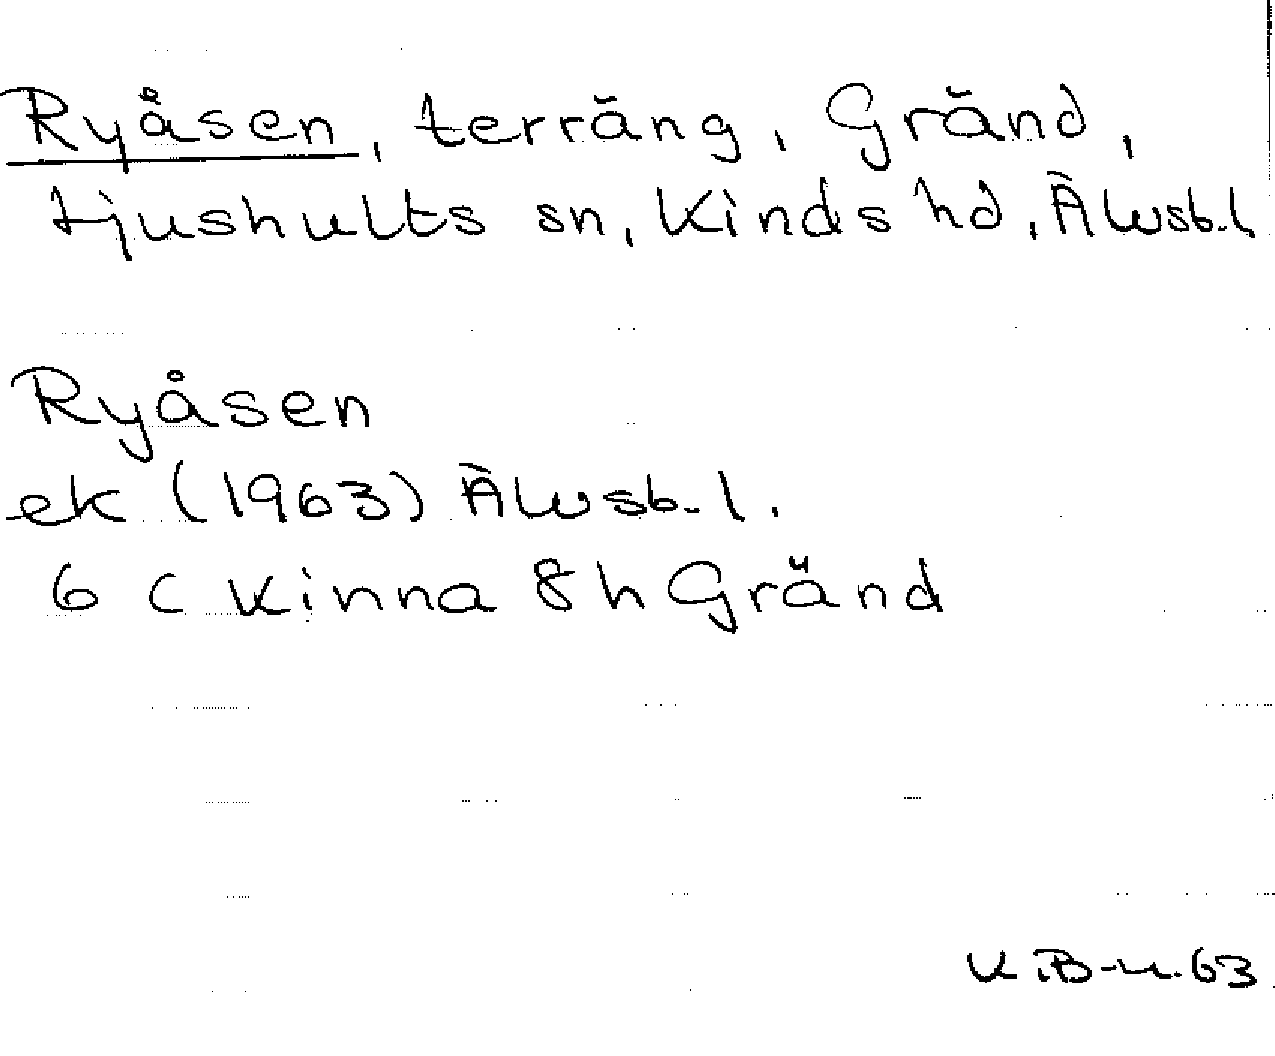 Ryåsen, terräng, Gränd,
tjushults sn, Kinds hd, Älvsb.l
Ryåsen
ek (1963) Älvsb. l.
6 C Kinna 8h Gränd
63